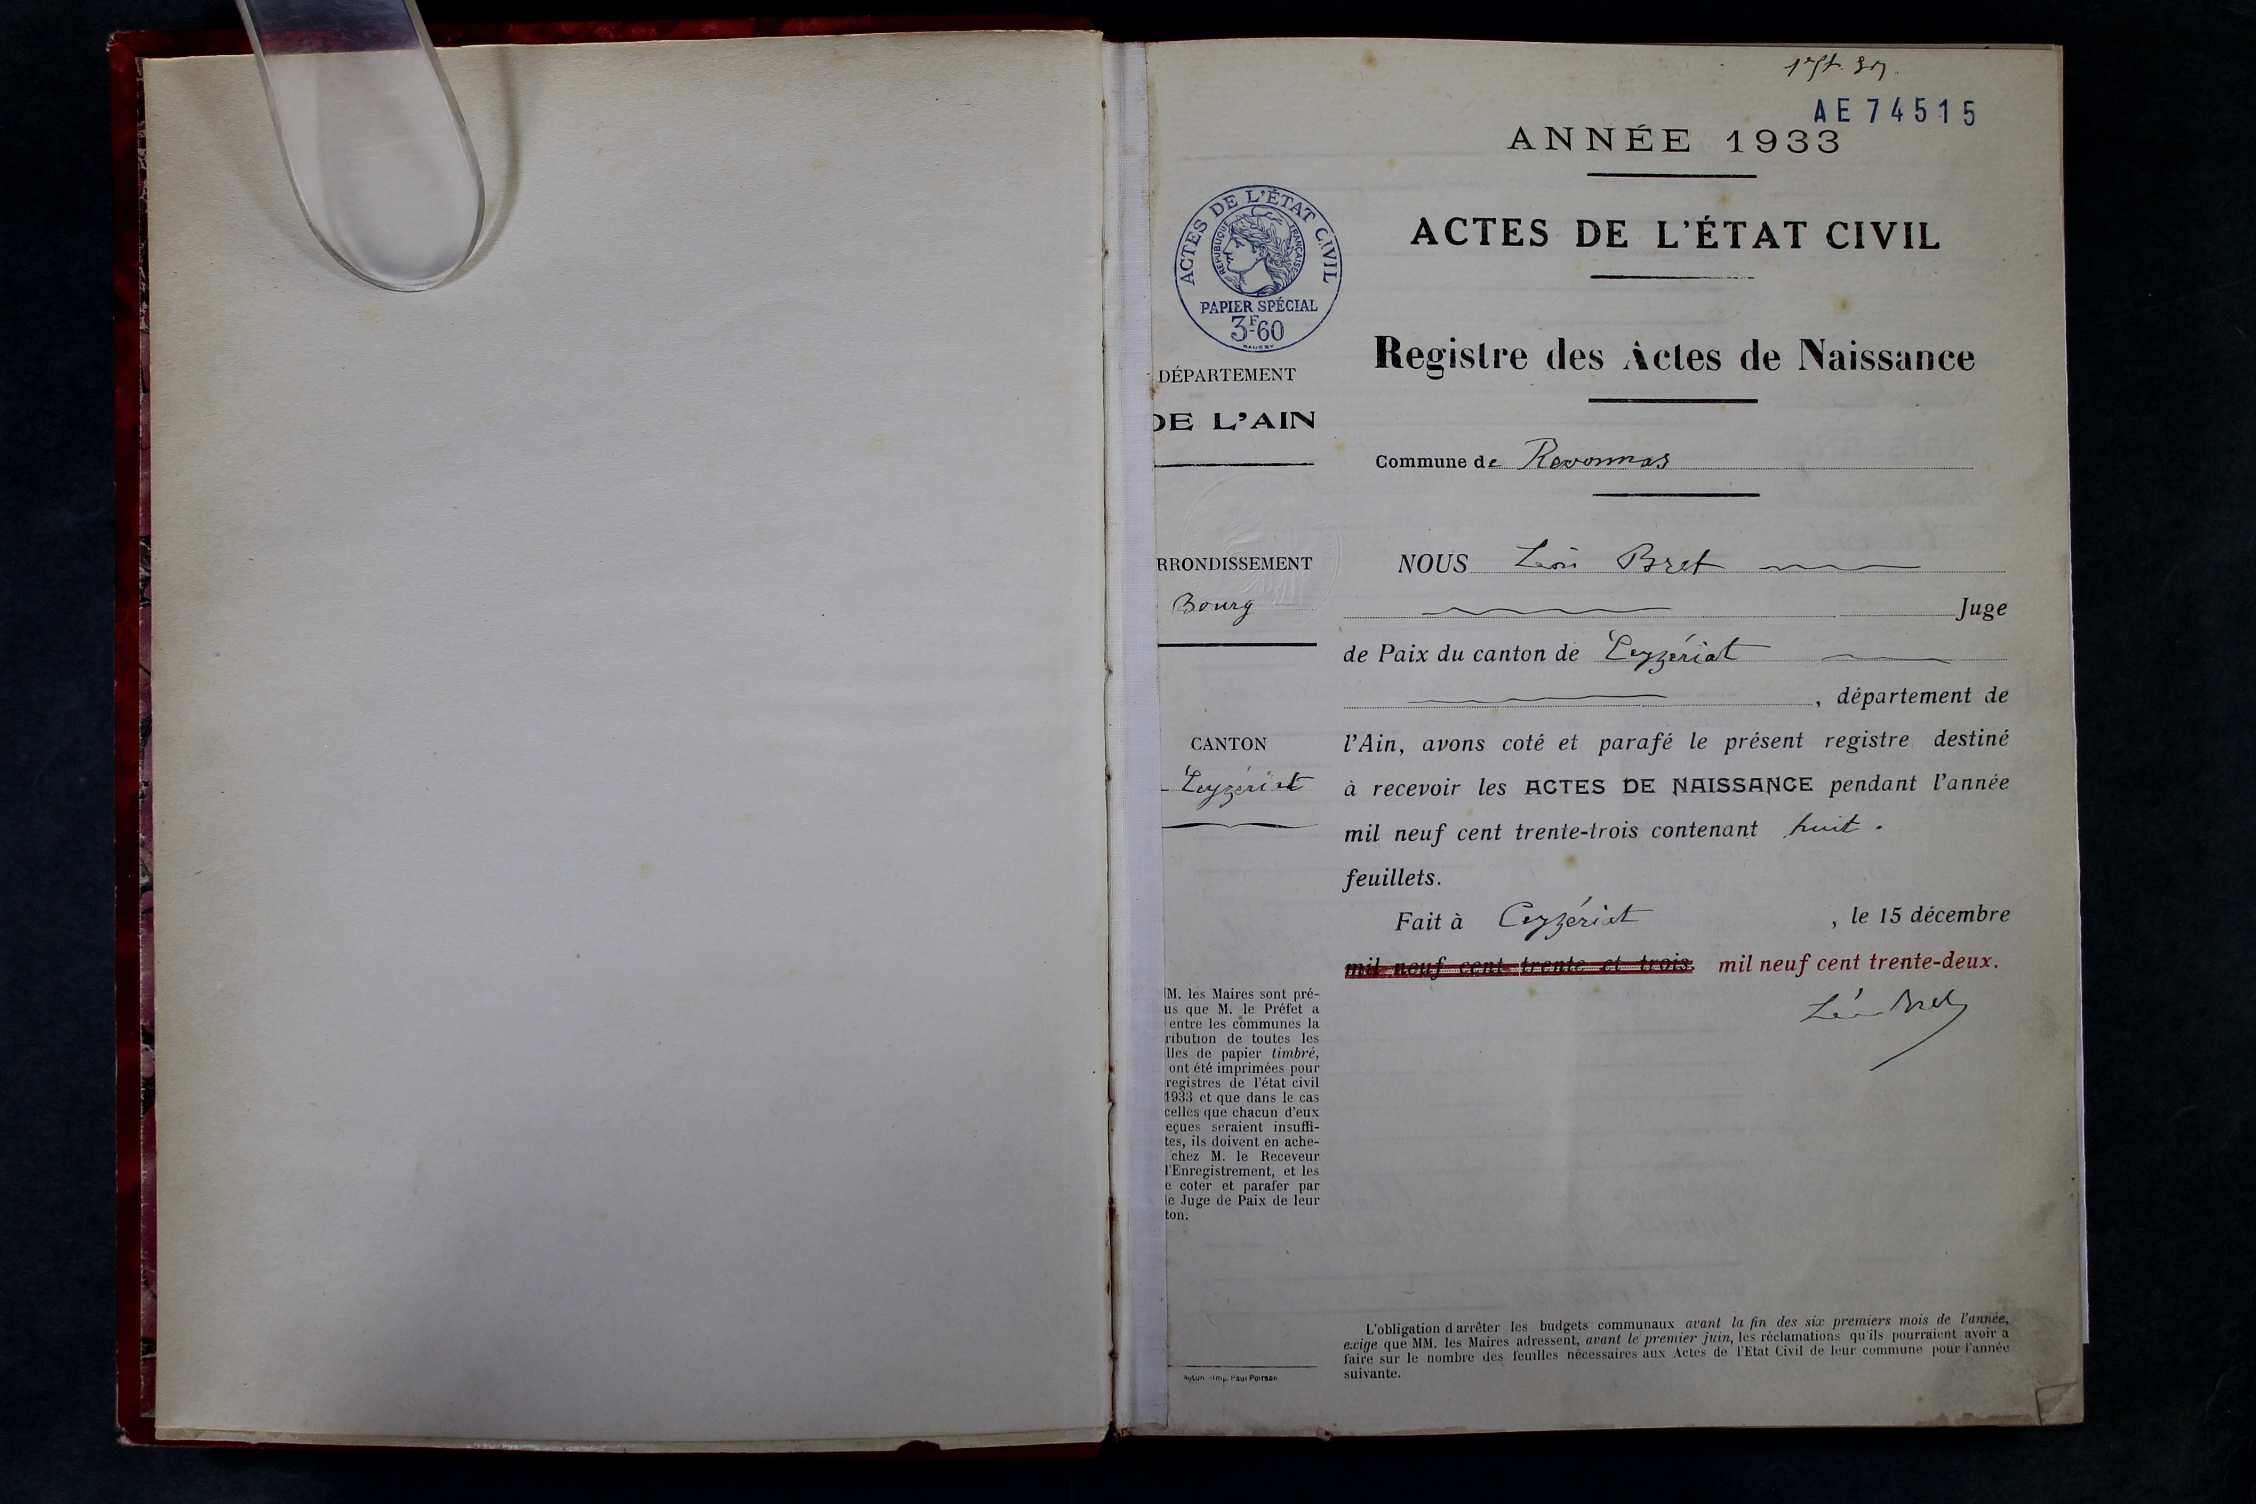 AE 74515
ANNÉE 1933
ACTES DE L'ÉTAT CIVIL
Registre des Actes de Naissance
Commune de Revonnas
NOUS Léon Bret
Juge
de Paix du canton de Ceyzériat
, département de
l'Ain, avons coté et parafé le présent registre destiné
à recevoir les ACTES DE NAISSANCE pendant l'année
mil neuf cent trente-trois contenant huit.
feuillets.
Fait à Ceyzériat , le 15 décembre
mil neuf cent trente et trois. mil neuf cent trente-deux.
Léon Bret
L'obligation d'arrêter les budgets communaux avant la fin des six premiers mois de l'année,
exige que MM. les Maires adressent, avant le premier juin, les réclamations qu'ils pourraient avoir a
faire sur le nombre des feuilles nécessaires aux Actes de l'Etat Civil de leur commune pour l'année
suivante.
ACTES DE L'ÉTAT CIVIL
RÉPUBLIQUE FRANÇAISE
PAPIER SPÉCIAL
3F-60
DÉPARTEMENT
DE L'AIN
RRONDISSEMENT
Bourg
CANTON
Ceyzériat
M. les Maires sont pré-
us que M. le Préfet a
entre les communes la
ribution de toutes les
lles de papier timbré,
ont été imprimées pour
registres de l'état civil
1933 et que dans le cas
celles que chacun d'eux
eçues seraient insuffi-
tes, ils doivent en ache-
chez M. le Receveur
l'Enregistrement, et les
e coter et parafer par
le Juge de Paix de leur
ton.
Autun - Imp. Paul Poirson